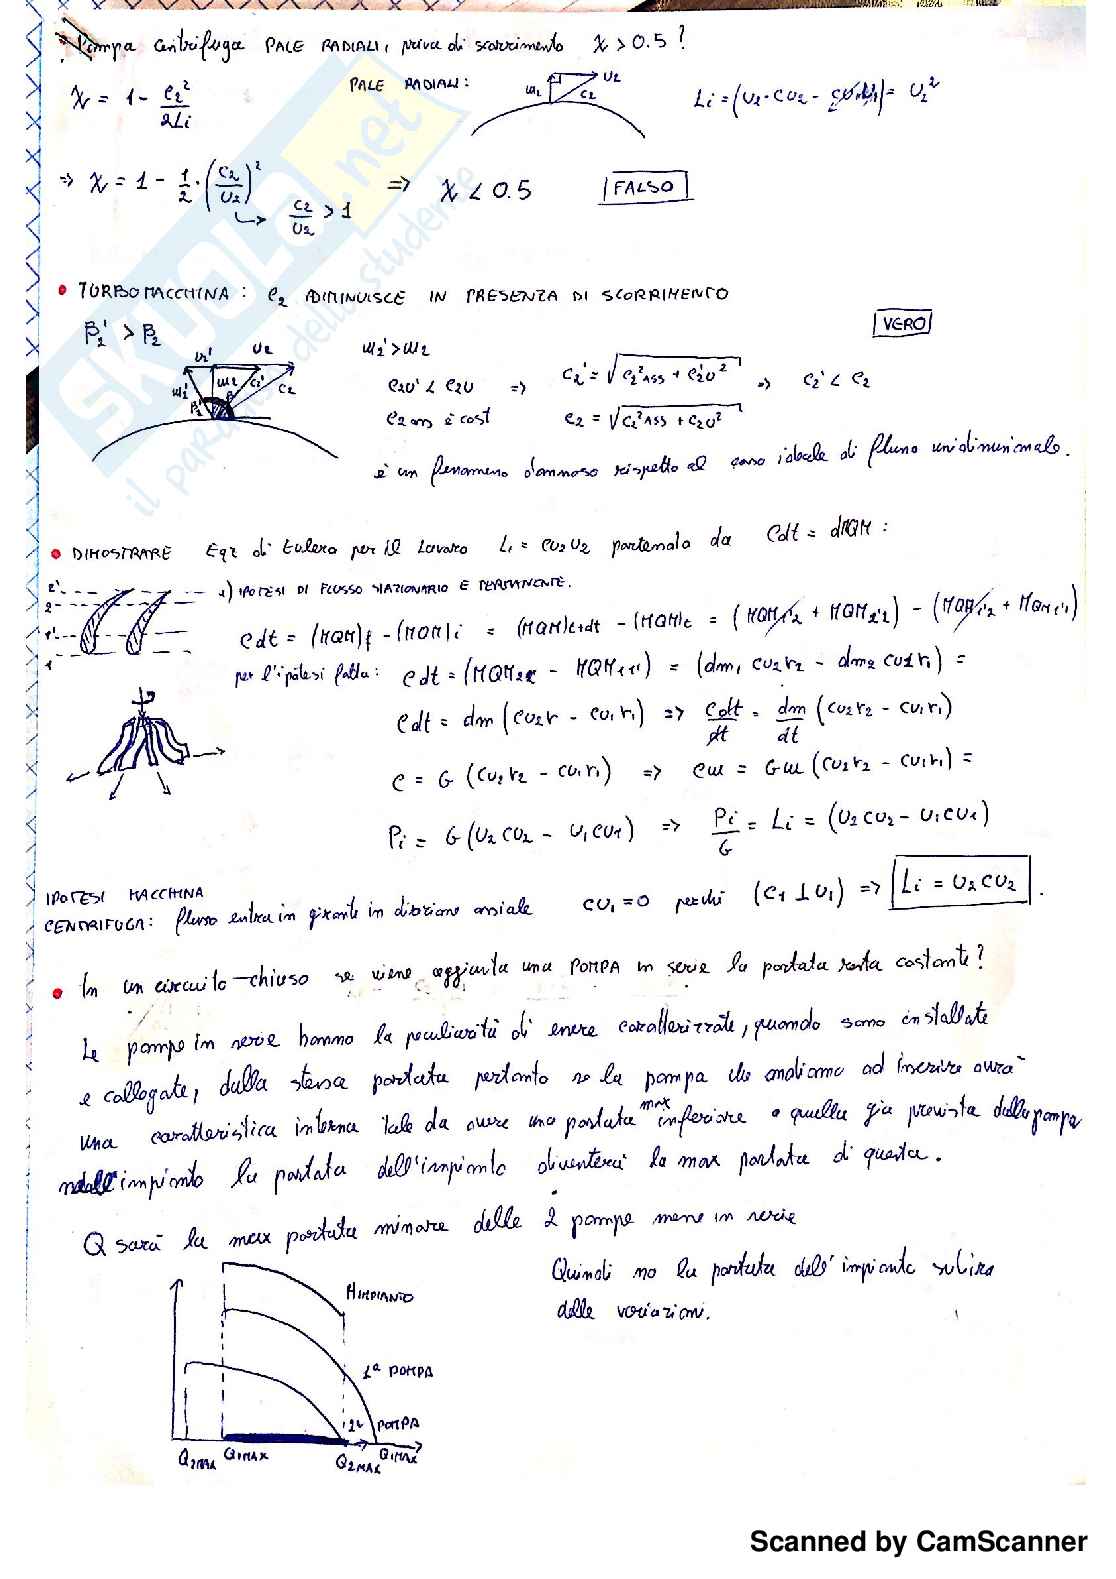 Pompa centrifuga PALE RADIALI, priva di scorrimento χ > 0.5 ?
χ = 1 - c2²/2Li
PALE RADIALI:
w2 u2 c2
Li = (u2·cu2 - cu1u1) = u2²
=> χ = 1 - 1/2·(c2/u2)² => χ < 0.5 FALSO
c2/u2 > 1
• TURBOMACCHINA: c2 DIMINUISCE IN PRESENZA DI SCORRIMENTO
VERO
β2' > β2
w2' > w2
c2u' < c2u => c2' = √c2²ASS + c2'u² => c2' < c2
c2ass è cost c2 = √c2²ASS + c2u²
è un fenomeno dannoso rispetto al caso ideale di flusso unidimensionale.
• DIMOSTRARE Eqz di Eulero per il Lavoro Li = cu2u2 partendo da Cdt = dMQM :
1) IPOTESI DI FLUSSO STAZIONARIO E PERMANENTE.
2'
2
1'
1
Cdt = (MQM)f - (MQM)i = (MQM)t+dt - (MQM)t = (MQM1'2 + MQM2'2) - (MQM1'2 + MQM1'1)
per l'ipotesi fatta: Cdt = (MQM22' - MQM11') = (dm1 cu2r2 - dm2 cu1r1) =
Cdt = dm (cu2r - cu1r1) => Cdt/dt = dm/dt (cu2r2 - cu1r1)
C = G (cu2r2 - cu1r1) => Cω = Gω (cu2r2 - cu1r1) =
Pi = G (u2cu2 - u1cu1) => Pi/G = Li = (u2cu2 - u1cu1)
IPOTESI MACCHINA
CENTRIFUGA: flusso entra in girante in direzione assiale cu1 = 0 perché (c1 ⊥ u1) => Li = u2cu2 .
• In un circuito chiuso se viene aggiunta una POMPA in serie la portata resta costante?
Le pompe in serie hanno la peculiarità di essere caratterizzate, quando sono installate
e collegate, dalla stessa portata pertanto se la pompa che andiamo ad inserire avrà
una caratteristica interna tale da avere una portata max inferiore a quella già prevista dalla pompa
nell'impianto la portata dell'impianto diventerà la max portata di questa.
Q sarà la max portata minore delle 2 pompe messe in serie
Quindi no la portata dell'impianto subirà
delle variazioni.
HIMPIANTO
1ª POMPA
2ª POMPA
Q2MAX Q1MAX Q2MAX Q1MAX
SKUOLA.net
il paradiso dello studente
Scanned by CamScanner